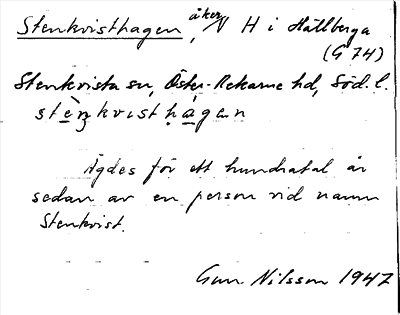 Stenkvisthagen, åker, N H i Hällberga
(G 74)
Stenkvista sn, Öster-Rekarne hd, Söd. l.
stèn̥kvisth̥àgan
Ägdes för ett hundratal år
sedan av en person vid namn
Stenkvist.
Gun Nilsson 1947